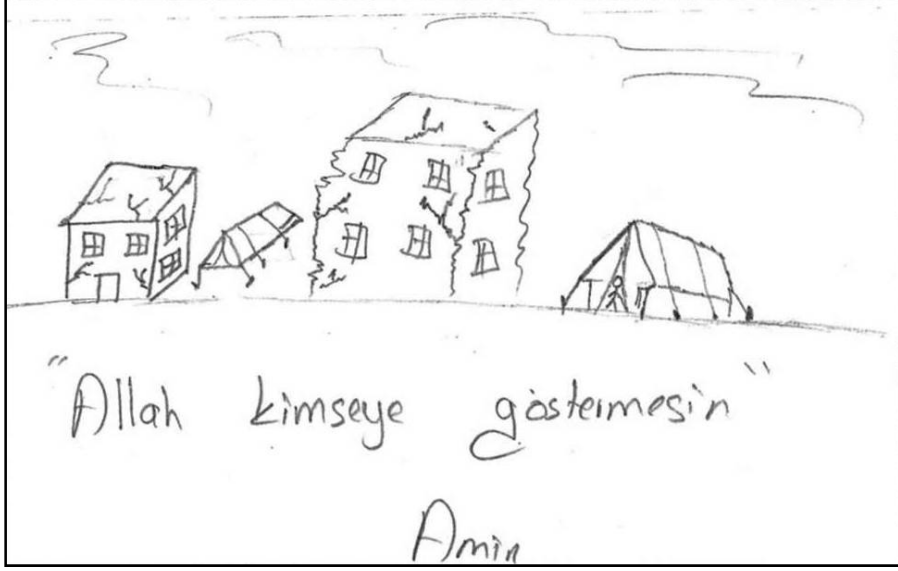 "Allah kimseye göstermesin"
Amin